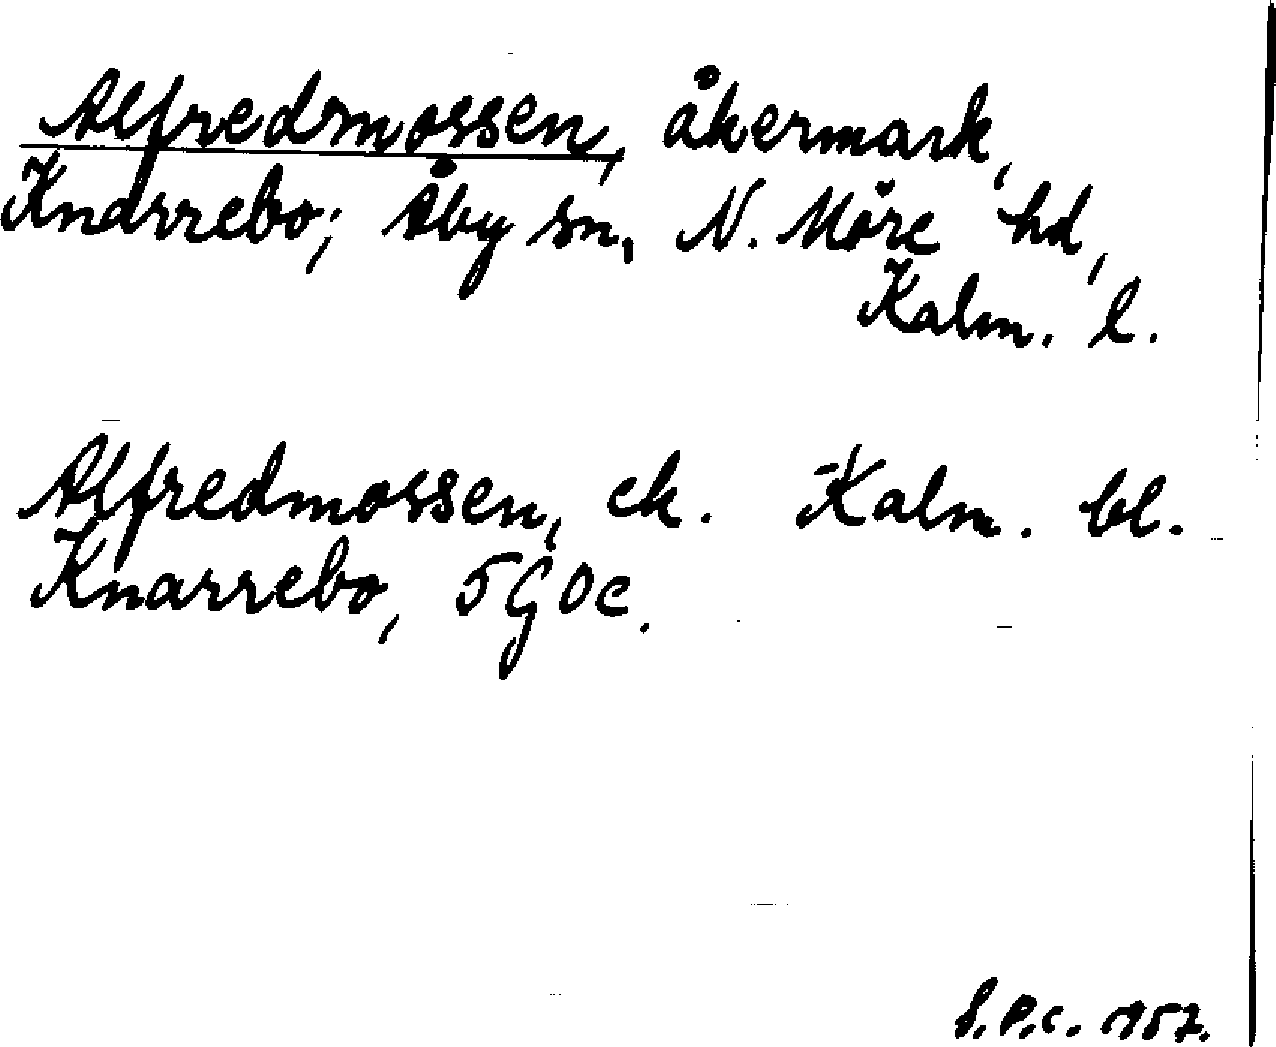 Alfredsmossen, åkermark,
Knarrebo; Åby sn, N. Möre hd,
Kalm. l.
Alfredmossen, ek. Kalm. bl.
Knarrebo, 5G0c.
S.P.C. 1957.